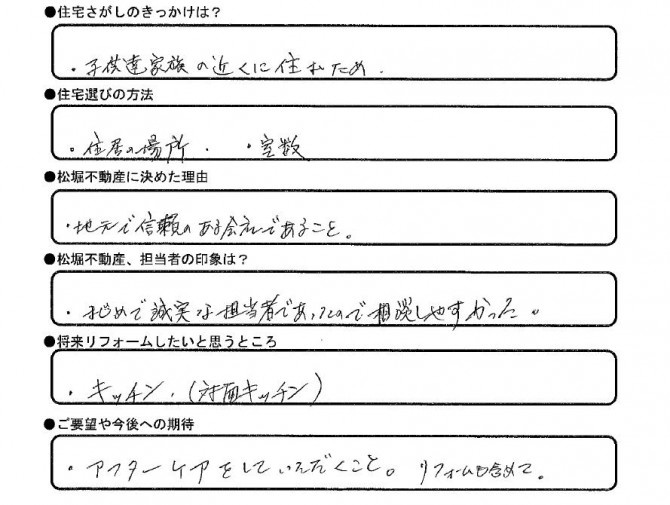 ●住宅さがしのきっかけは？
・子供達家族の近くに住むため.
●住宅選びの方法
・住居の場所. ・室数
●松堀不動産に決めた理由
・地元で信頼のある会社であること。
●松堀不動産、担当者の印象は？
・まじめで誠実な担当者であったので相談しやすかった。
●将来リフォームしたいと思うところ
・キッチン.(対面キッチン)
●ご要望や今後への期待
・アフターケアをしていただくこと。リフォームも含めて。